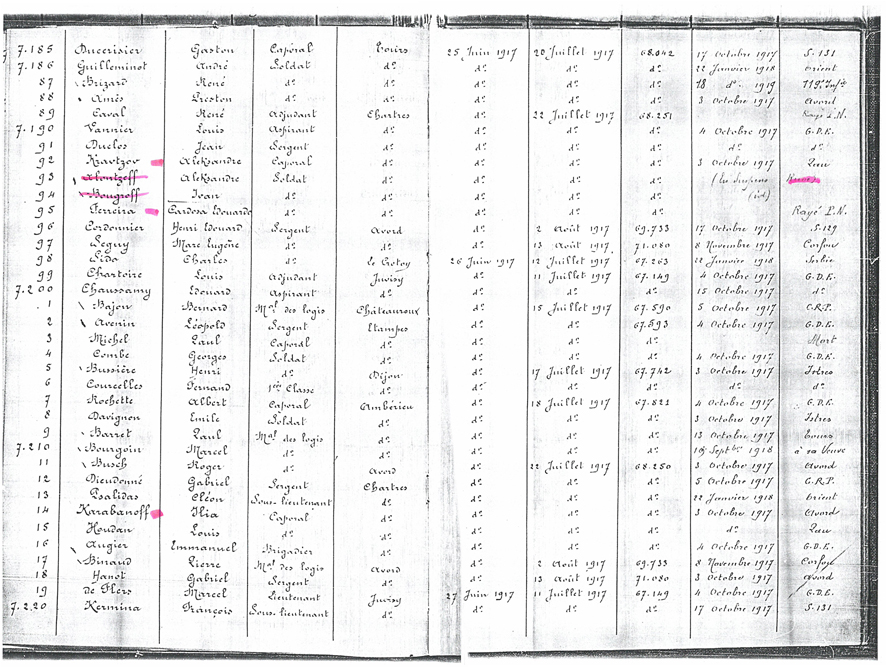 7.185 Ducerisier Gaston Caporal Tours 25 Juin 1917 20 Juillet 1917 68.042 17 Octobre 1917 S.131
7.186 Guilleminot André Soldat d° d° d° d° 22 Janvier 1918 Orient
87 Brizard René d° d° d° d° d° 18 d° 1919
88 Amès Preston d° d° d° d° d° 3 Octobre 1917 Avord
89 Caval René Adjudant Chartres d° 22 Juillet 1917 68.251
7.190 Vannier Louis Aspirant d° d° d° d° 4 Octobre 1917 G.D.E.
91 Duclos Jean Sergent d° d° d° d° d° d°
92 Kvartzov Aleksandre Caporal d° d° d° d° 3 Octobre 1917
93 Aleksandre Soldat d° d° d° d°
94 Bougroff Ivan d° d° d° d° d°
95 Ferreira Cardosa Edouardo d° d° d° d° d° Rayé P.N.
96 Cordonnier Henri Edouard Sergent Avord d° 2 Août 1917 69.733 17 Octobre 1917 S.129
97 Seguy Marc Eugène d° d° d° 13 Août 1917 71.080 8 Novembre 1917 Corfou
98 Sido Charles d° Le Crotoy 26 Juin 1917 12 Juillet 1917 67.263 22 Janvier 1918 Serbie
99 Chartoire Louis Adjudant Juvisy d° 11 Juillet 1917 67.149 4 Octobre 1917 G.D.E.
7.200 Chaussamy Edouard Aspirant d° d° d° d° 15 Octobre 1917 d°
1 Bajon Bernard Mal des logis Châteauroux d° 15 Juillet 1917 67.590 5 Octobre 1917 C.R.P.
2 Avenin Léopold Sergent Etampes d° d° 67.593 4 Octobre 1917 G.D.E.
3 Michel Paul Caporal d° d° d° d° d° Mort
4 Combe Georges Soldat d° d° d° d° 4 Octobre 1917 G.D.E.
5 Bussière Henri d° Dijon d° 17 Juillet 1917 67.742 3 Octobre 1917 Istres
6 Courcelles Fernand 1ère Classe d° d° d° d° d° d°
7 Rochette Albert Caporal Ambérieu d° 18 Juillet 1917 67.821 4 Octobre 1917 G.D.E.
8 Davignon Emile Soldat d° d° d° d° 3 Octobre 1917 Istres
9 Barret Paul Mal des logis d° d° d° d° 13 Octobre 1917 Tours
7.210 Bourgoin Marcel d° d° d° d° d° Septbre 1918
11 Busch Roger d° Avord d° 22 Juillet 1917 68.250 3 Octobre 1917 Avord
12 Dieudonné Gabriel Sergent Chartres d° d° d° 5 Octobre 1917
13 Psalidas Cléon Sous-lieutenant d° d° d° d° 22 Janvier 1918 Orient
14 Karabanoff Ilia Caporal d° d° d° d° 3 Octobre 1917 Avord
15 Houdan Louis d° d° d° d° d° d°
16 Augier Emmanuel Brigadier d° d° d° d° 4 Octobre 1917 G.D.E.
17 Binaud Pierre Mal des logis Avord d° 2 Août 1917 69.733 8 Novembre 1917 Corfou
18 Hanot Gabriel Sergent d° d° 13 Août 1917 71.080 3 Octobre 1917 Avord
19 de Flers Marcel Lieutenant Juvisy 27 Juin 1917 11 Juillet 1917 67.149 4 Octobre 1917 G.D.E.
7.220 Kermina François Sous-lieutenant d° d° d° d° 17 Octobre 1917 S.131